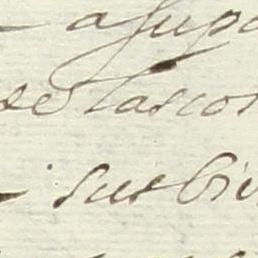 a su po
se las cos
sus bie